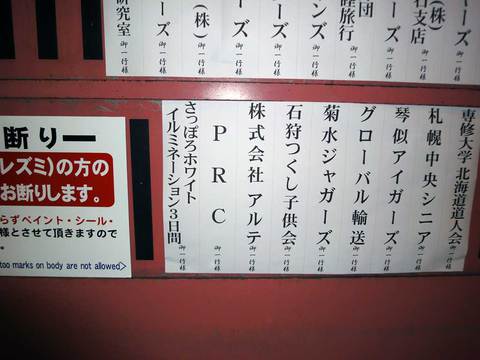 ーズ 御一行様
(株) 石支店 御一行様
ーズ 御一行様
団 陸旅行 御一行様
ンズ 御一行様
ーズ 御一行様
(株) 御一行様
ーズ 御一行様
研究室 御一行様
専修大学 北海道道人会 御一行様
札幌中央シニア 御一行様
琴似アイガーズ 御一行様
グローバル輸送 御一行様
菊水ジャガーズ 御一行様
石狩つくし子供会 御一行様
株式会社 アルテ 御一行様
PRC 御一行様
さっぽろホワイト
イルミネーション3日間 御一行様
断りー
レズミ)の方の
お断りします。
らずペイント・シール・
様とさせて頂きますので
too marks on body are not allowed>